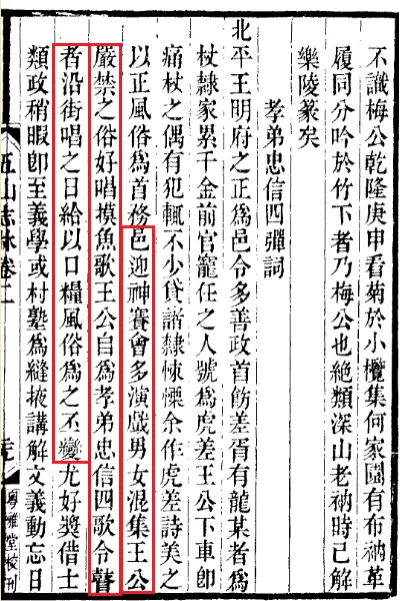 不識梅公乾隆庚申看菊於小欖集何家園有布衲革
履同分吟於竹下者乃梅公也絶類深山老衲時已解
樂陵篆矣
孝弟忠信四彈詞
北平王明府之正爲邑令多善政首飭差胥有龍某者爲
杖隸家累千金前官寵任之人號爲虎差王公下車卽
痛杖之偶有犯輒不少貸諸隸悚慄余作虎差詩美之
以正風俗爲首務邑迎神賽會多演戲男女混集王公
嚴禁之俗好唱摸魚歌王公自爲孝弟忠信四歌令瞽
者沿街唱之日給以口糧風俗爲之丕變尤好獎借士
類政稍暇卽至義學或村塾爲縫掖講解文義動忘日
五山志林卷二
粵雅堂校刊